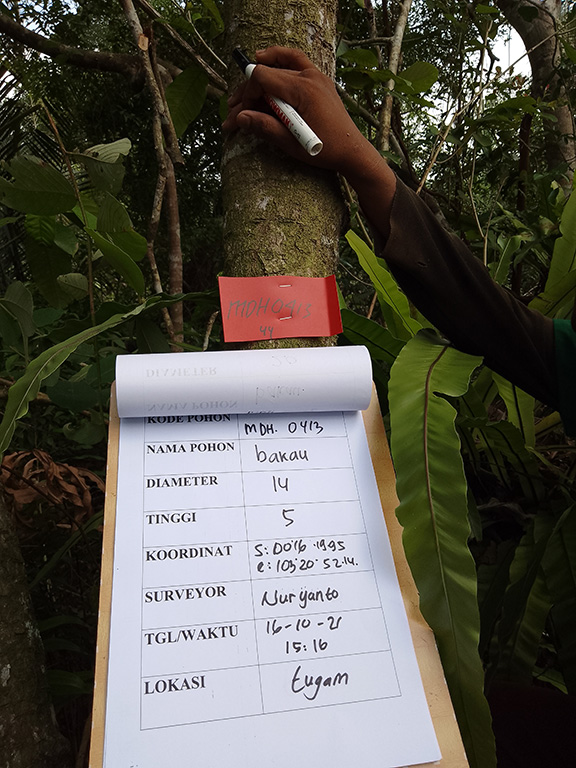 MDH 0413
44
DIAMETER
NAMA POHON
KODE POHON MDH. 0413
NAMA POHON bakau
DIAMETER 14
TINGGI 5
KOORDINAT S: 00'16 .1995
e: 103'20'.52.14.
SURVEYOR Nuryanto
TGL/WAKTU 16-10-21
15:16
LOKASI tugam